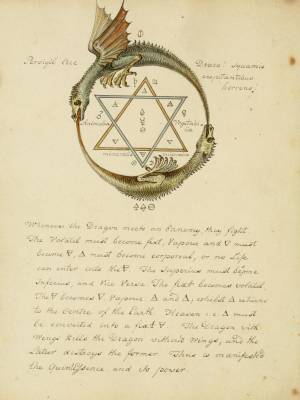 Draco: Squamis
crepitantibus
horrens.
Animalium
Vegetabi-
lia
mineralia
Whenever the Dragon meets an Ennemy they fight.
The Volatil must become fixt, Vapour and 🜄 must
become 🜃, 🜂 must become corporeal, or no Life
can enter into the 🜃. The Superius must become
Inferius, and Vice Versa. The fixt becomes volatil.
The 🜃 becomes 🜄 Vapour 🜁 and 🜂; whilst 🜂 returns
to the Centre of the Earth. Heaven i.e. 🜂 must
be converted into a fixt 🜃. The Dragon with
Wings kills the Dragon without Wings, and the
latter destroys the former. Thus is manifested
the Quintessence and its power.